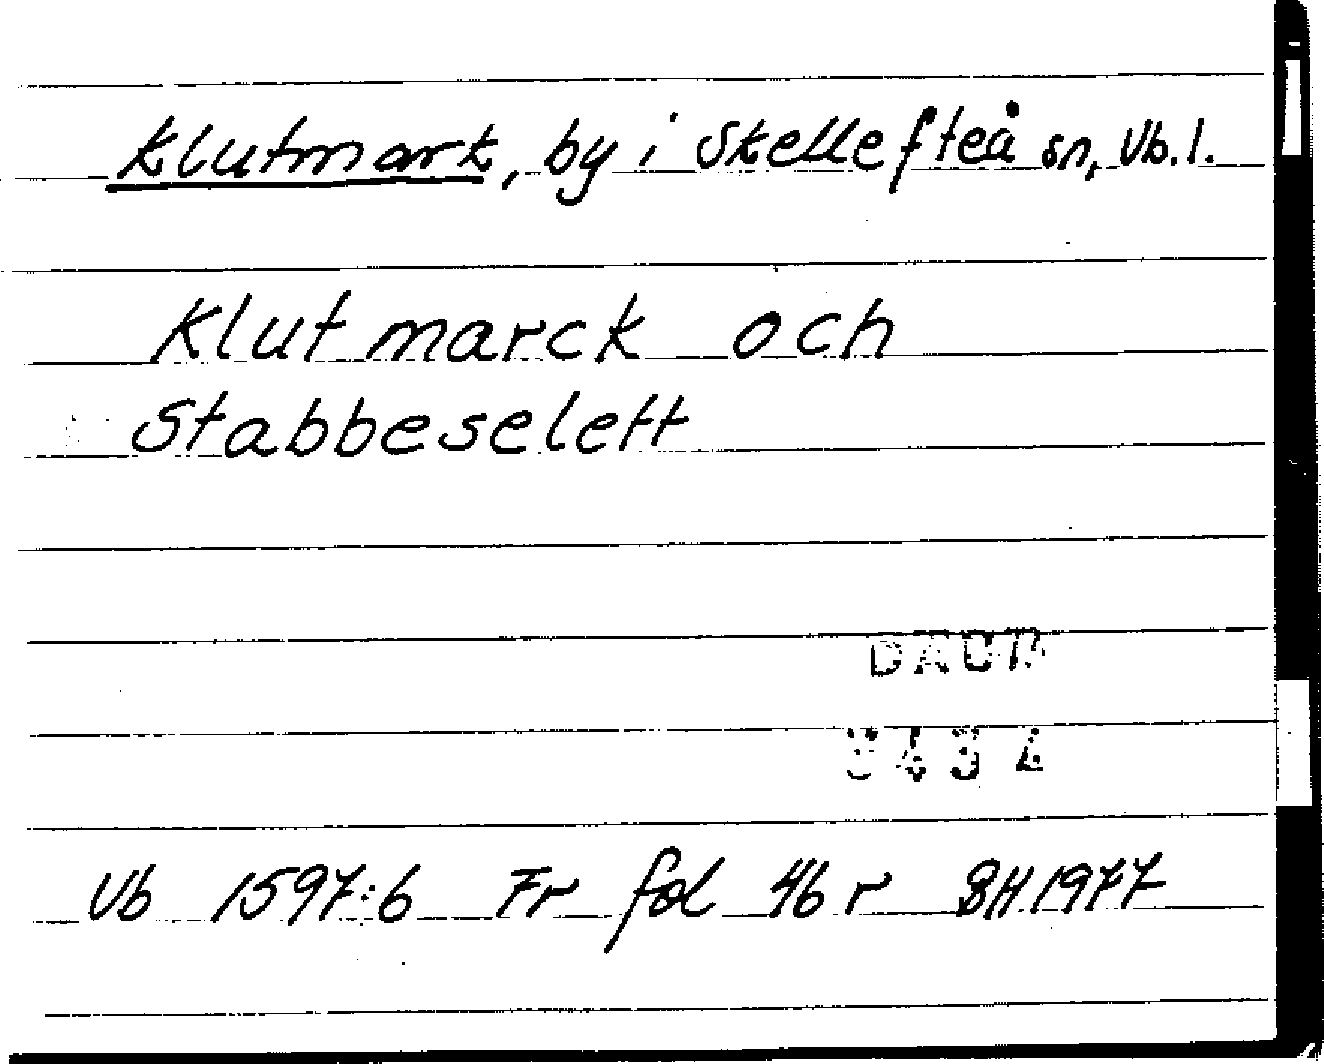 Klutmark, by i Skellefteå sn, Vb. l.
Klutmarck och
Stabbeselett
DAUM
3434
Vb 1597:6 Fr fol 46 r BH 1977